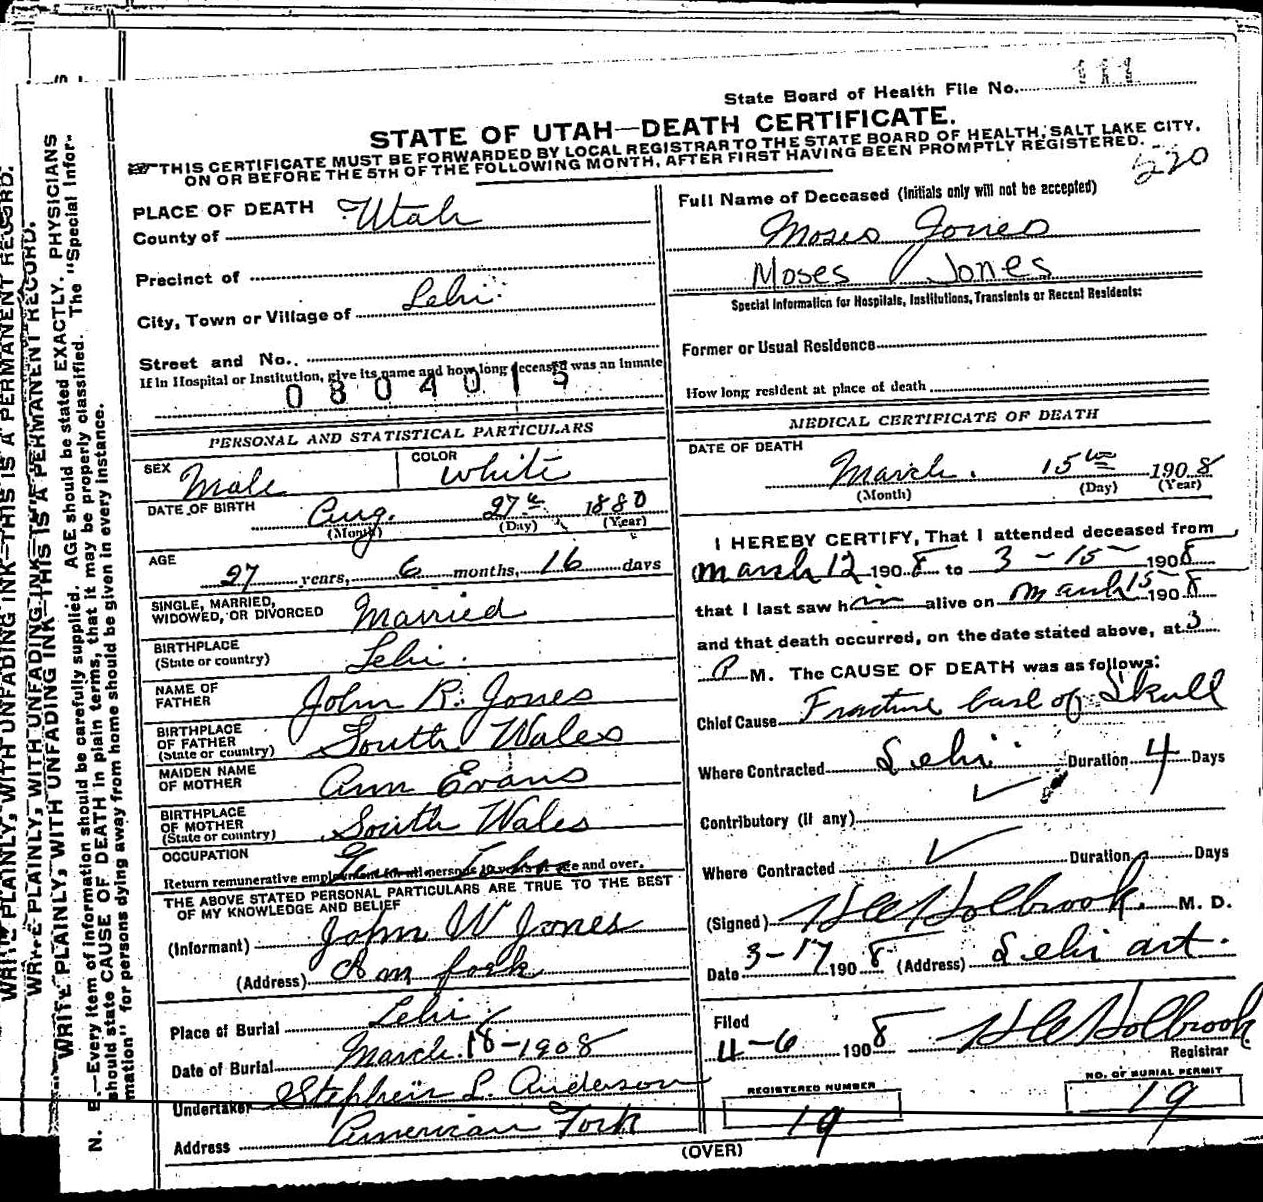 State Board of Health File No. 111
STATE OF UTAH—DEATH CERTIFICATE.
THIS CERTIFICATE MUST BE FORWARDED BY LOCAL REGISTRAR TO THE STATE BOARD OF HEALTH, SALT LAKE CITY,
ON OR BEFORE THE 5TH OF THE FOLLOWING MONTH, AFTER FIRST HAVING BEEN PROMPTLY REGISTERED.
220
PLACE OF DEATH
County of Utah
Precinct of
City, Town or Village of Lehi
Street and No.
If in Hospital or Institution, give its name and how long deceased was an inmate
0804015
PERSONAL AND STATISTICAL PARTICULARS
SEX Male
COLOR White
DATE OF BIRTH Aug. 27th 1880
(Month) (Day) (Year)
AGE 27 years, 6 months, 16 days
SINGLE, MARRIED,
WIDOWED, OR DIVORCED Married
BIRTHPLACE
(State or country) Lehi.
NAME OF
FATHER John R. Jones
BIRTHPLACE
OF FATHER
(State or country) South Wales
MAIDEN NAME
OF MOTHER Ann Evans
BIRTHPLACE
OF MOTHER
(State or country) South Wales
OCCUPATION
Return remunerative employment for all persons 10 years of age and over.
THE ABOVE STATED PERSONAL PARTICULARS ARE TRUE TO THE BEST
OF MY KNOWLEDGE AND BELIEF
(Informant) John W Jones
(Address) Am fork
Place of Burial Lehi
Date of Burial March 18-1908
Undertaker Stephen L. Anderson
Address American Fork
Full Name of Deceased (Initials only will not be accepted)
Moses Jones
Moses Jones
Special Information for Hospitals, Institutions, Transients or Recent Residents:
Former or Usual Residence
How long resident at place of death
MEDICAL CERTIFICATE OF DEATH
DATE OF DEATH
March. 15th 1908
(Month) (Day) (Year)
I HEREBY CERTIFY, That I attended deceased from
March 12 1908 to 3-15- 1908
that I last saw him alive on March 15- 1908
and that death occurred, on the date stated above, at 3
P M. The CAUSE OF DEATH was as follows:
Chief Cause Fracture base of Skull
Where Contracted Lehi Duration 4 Days
Contributory (if any)
Where Contracted Duration Days
(Signed) Holbrook. M. D.
Date 3-17 1908 (Address) Lehi
Filed
4-6 1908 Holbrook
Registrar
REGISTERED NUMBER
19
NO. OF BURIAL PERMIT
19
(OVER)
WRITE PLAINLY, WITH UNFADING INK—THIS IS A PERMANENT RECORD.
WRITE PLAINLY, WITH UNFADING INK—THIS IS A PERMANENT RECORD.
WRITE PLAINLY, WITH UNFADING INK—THIS IS A PERMANENT RECORD.
N. B.—Every item of information should be carefully supplied. AGE should be stated EXACTLY. PHYSICIANS
should state CAUSE OF DEATH in plain terms, that it may be properly classified. The "Special Infor-
mation" for persons dying away from home should be given in every instance.